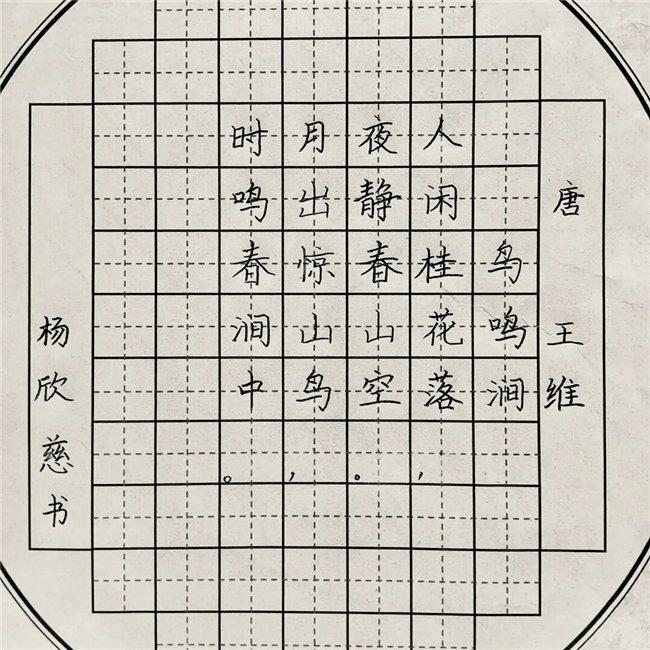 唐 王维
鸟鸣涧
人闲桂花落，
夜静春山空。
月出惊山鸟，
时鸣春涧中。
杨欣慈书